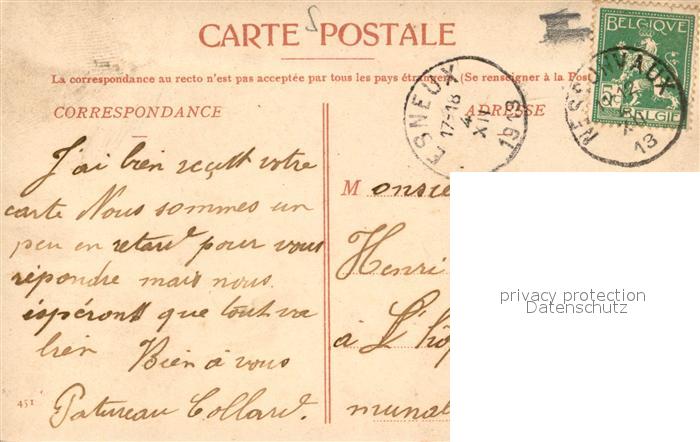 CARTE POSTALE
La correspondance au recto n'est pas acceptée par tous les pays étrangers (Se renseigner à la Post
CORRESPONDANCE
ADRESSE
BELGIQUE
5 BELGIË
ESNEUX
17-18
4
XII
1913
NESSONVAUX
13
J'ai bien reçu votre
carte Nous sommes un
peu en retard pour vous
répondre mais nous
espérons que tout va
bien Bien à vous
Patureau Collard.
Monsie
Henri
à L'hôp
munal
451
privacy protection
Datenschutz